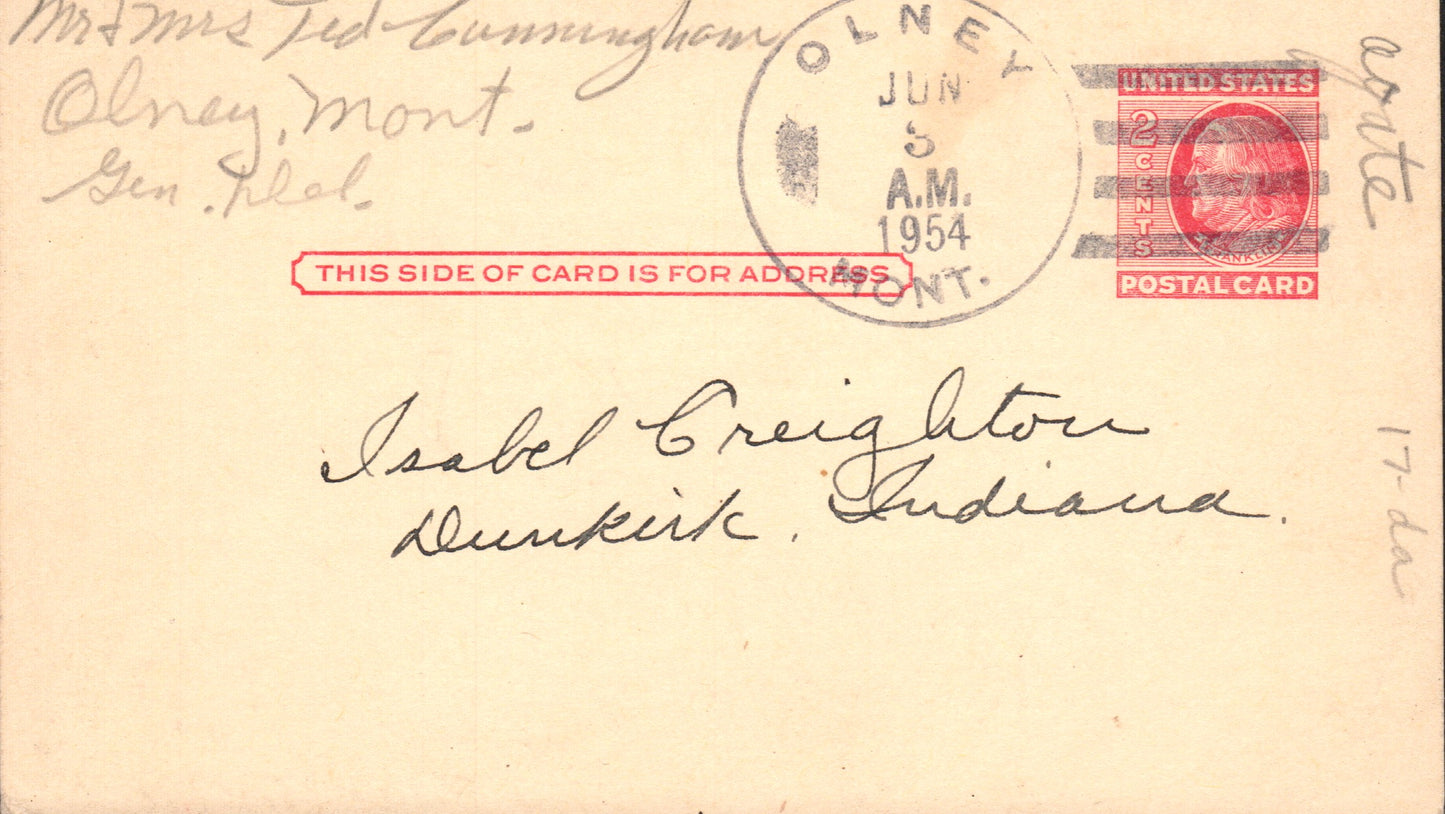 Mr & Mrs Ted Cunningham
Olney, Mont.
Gen. Del.
OLNEY
JUN
3
A.M.
1954
MONT.
UNITED STATES
2
CENTS
FRANKLIN
POSTAL CARD
THIS SIDE OF CARD IS FOR ADDRESS
Isabel Creighton
Dunkirk, Indiana.
agate
17-da